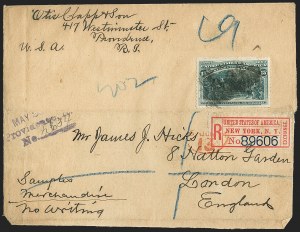 Otis Clapp & Son
417 Westminster St.
Providence
U. S. A. R. I.
202
MAY
Providence
No.
UNITED STATES OF AMERICA
NEW YORK, N. Y.
R No. 89606
Mr James J. Hicks
8 Hatton Garden
London
England
Samples
Merchandise
No Writing